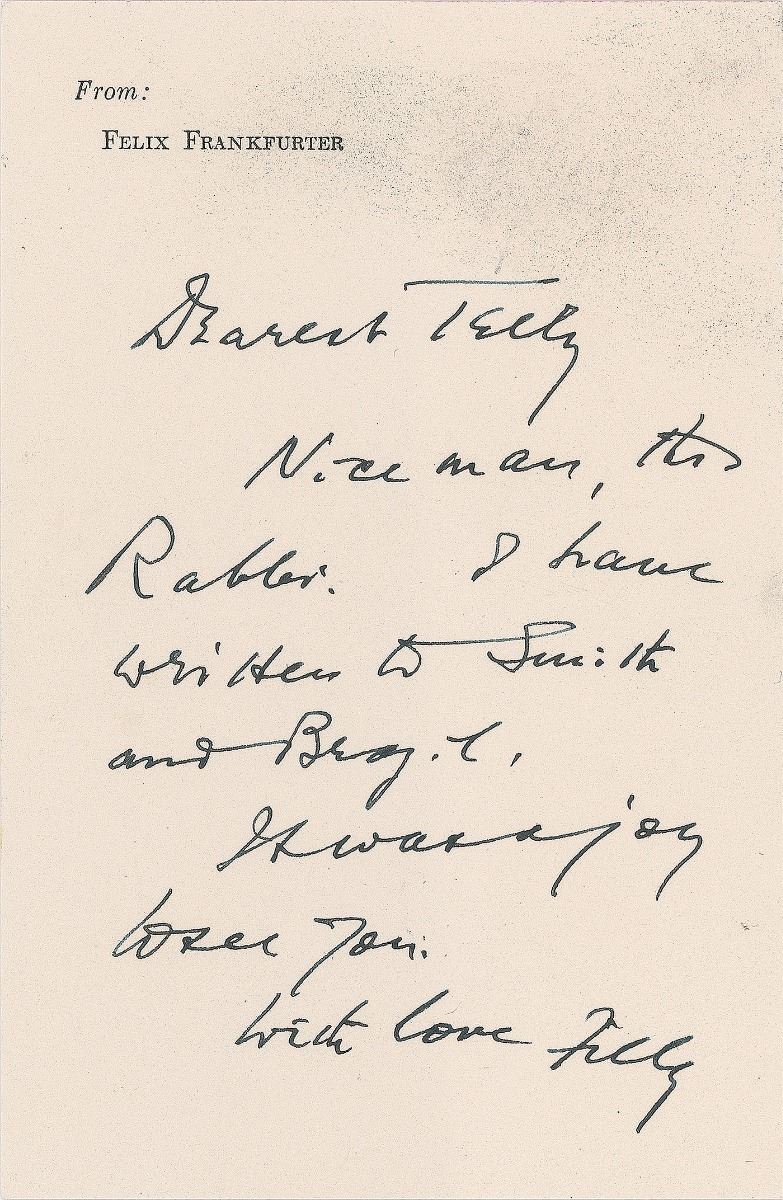 From:
FELIX FRANKFURTER
Dearest Telly
Nice man, this
Rabbi. I have
written to Smith
and Brazil.
It was a joy
to see you.
With love Filly